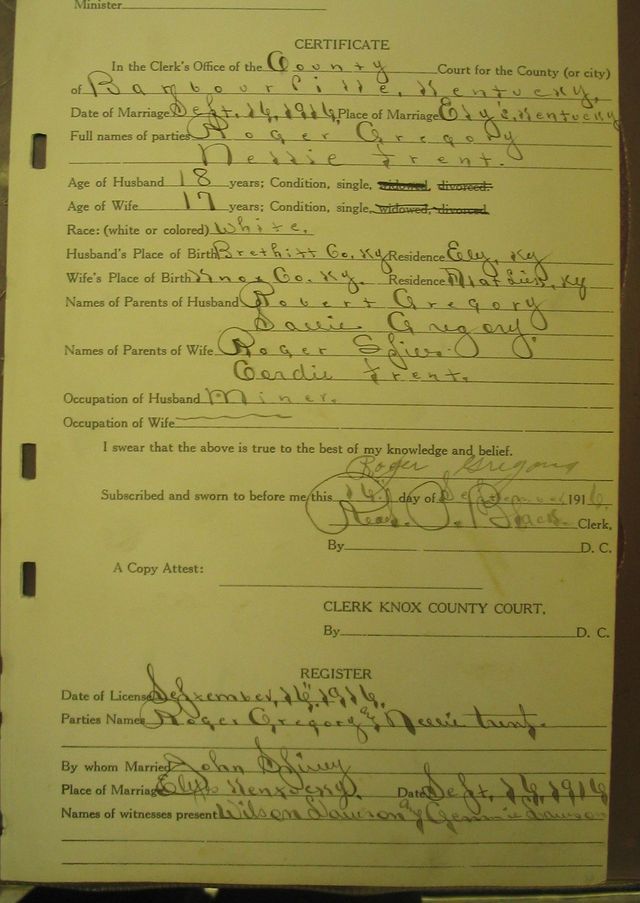 Minister
CERTIFICATE
In the Clerk's Office of the County Court for the County (or city)
of Barbourville, Kentucky,
Date of Marriage Sept. 16, 1916, Place of Marriage Ely's, Kentucky
Full names of parties Roger Gregory
Nellie Trent.
Age of Husband 18 years; Condition, single, widowed, divorced.
Age of Wife 17 years; Condition, single, widowed, divorced
Race: (white or colored) White.
Husband's Place of Birth Brethitt Co. Ky Residence Ely, Ky
Wife's Place of Birth Knox Co. Ky. Residence Ky
Names of Parents of Husband Robert Gregory
Sallie Gregory
Names of Parents of Wife Roger
Cordie Trent.
Occupation of Husband Miner.
Occupation of Wife
I swear that the above is true to the best of my knowledge and belief.
Roger Gregory
Subscribed and sworn to before me this 16 day of September 1916.
Read. O. Black. Clerk,
By D. C.
A Copy Attest:
CLERK KNOX COUNTY COURT.
By D. C.
REGISTER
Date of License September, 16, 1916.
Parties Names Roger Gregory and Nellie Trent.
By whom Married John
Place of Marriage Elys Kentucky. Date Sept, 16, 1916
Names of witnesses present Wilson Lawson and Gemmie Lawson